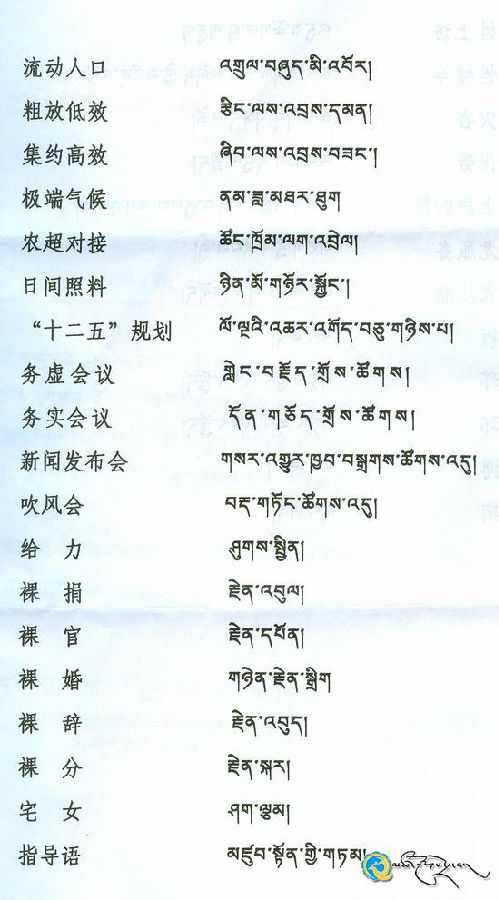 流动人口 འགྲུལ་བཞུད་མི་འབོར།
粗放低效 རྩིང་ལས་འབྲས་དམན།
集约高效 ཞིབ་ལས་འབྲས་བཟང་།
极端气候 ནམ་ཟླ་མཐར་ཐུག
农超对接 ཚོང་ཁྲོམ་ལག་འབྲེལ།
日间照料 ཉིན་མོ་གཉོར་སྐྱོང་།
“十二五”规划 ལོ་ལྔའི་འཆར་འགོད་བཅུ་གཉིས་པ།
务虚会议 གླེང་བརྗོད་གྲོས་ཚོགས།
务实会议 དོན་གཅོད་གྲོས་ཚོགས།
新闻发布会 གསར་འགྱུར་ཁྱབ་བསྒྲགས་ཚོགས་འདུ།
吹风会 བརྡ་གཏོང་ཚོགས་འདུ།
给 力 ཤུགས་སྤྱིན།
裸 捐 རྗེན་འབུལ།
裸 官 རྗེན་དཔོན།
裸 婚 གཉེན་རྗེན་སྒྲིག
裸 辞 རྗེན་འབུད།
裸 分 རྗེན་སྐར།
宅 女 ཤག་ལྕམ།
指导语 མཛུབ་སྟོན་གྱི་གཏམ།